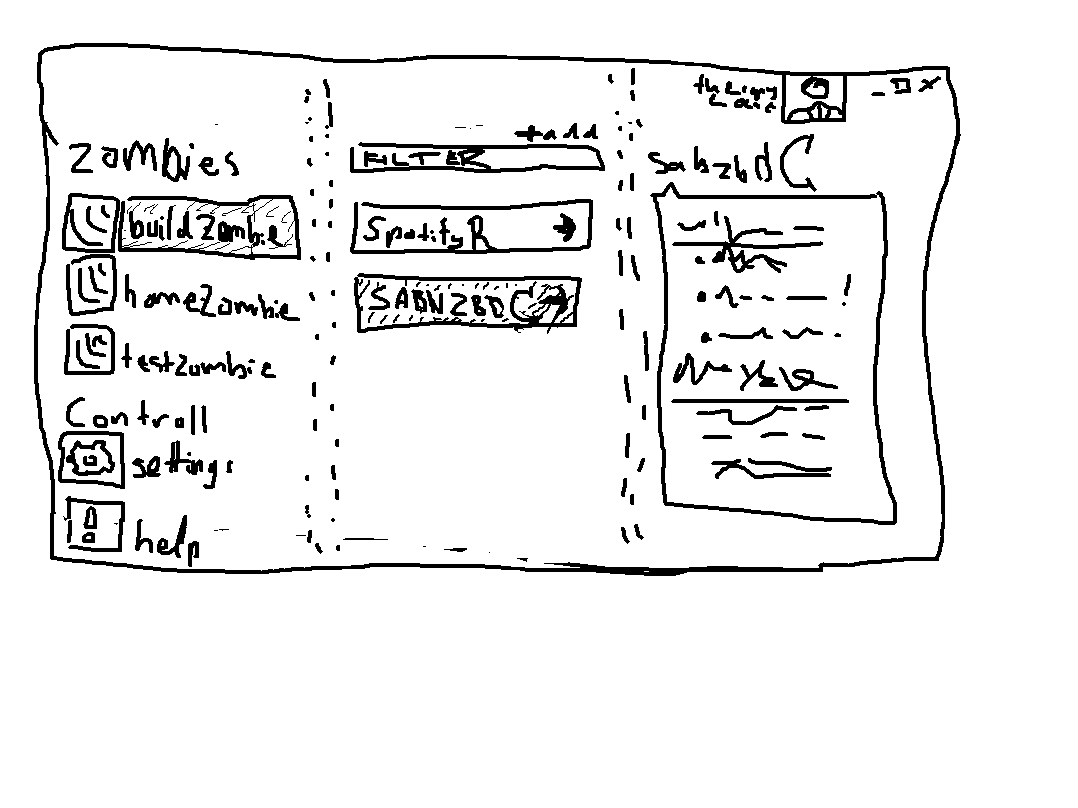 zombies
buildzombie
homezombie
testzombie
Controll
settings
help
+add
FILTER
SpotifyR
SABNZBDC
sabzbdC